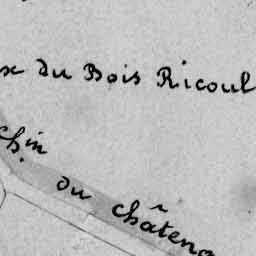 x du Bois Ricoul
Chin du châtena